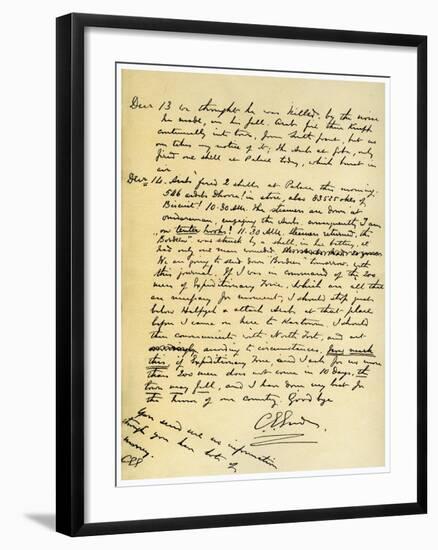 Decr 13 we thought he was killed, by the noise
he made, in his fall. Arabs fire their Krupps
continually into town, from South front, but no
one takes any notice of it; the Arabs at Goba, only
fired one shell at Palace today, which burst in
air
Decr 14. Arabs fired 2 shells at Palace this morning.
546 ardebs Dhoora! in store, also 83525 okes of
Biscuit! 10.30 A.M. The steamers are down at
Omdurman, engaging the Arabs, consequently I am
"on tenter hooks"! 11.30 A.M. Steamers returned, the
"Bordeen" was struck by a shell, in her battery, we
had only one man wounded.
We are going to send down "Bordeen" tomorrow with
this journal. If I was in command of the 200
men of Expeditionary Force, which are all that
are necessary for moment, I should stop just
below Halfyeh & attack Arabs at that place
before I came on here to Kartoum. I should
then communicate with North Fort, and act
according to circumstances. Now mark
this, if Expeditionary Force, and I ask for no more
than 200 men does not come in 10 days, the
town may fall, and I have done my best for
the honor of our country. Good bye
C G Gordon
You send me no information
though you have lots of
money.
CGG